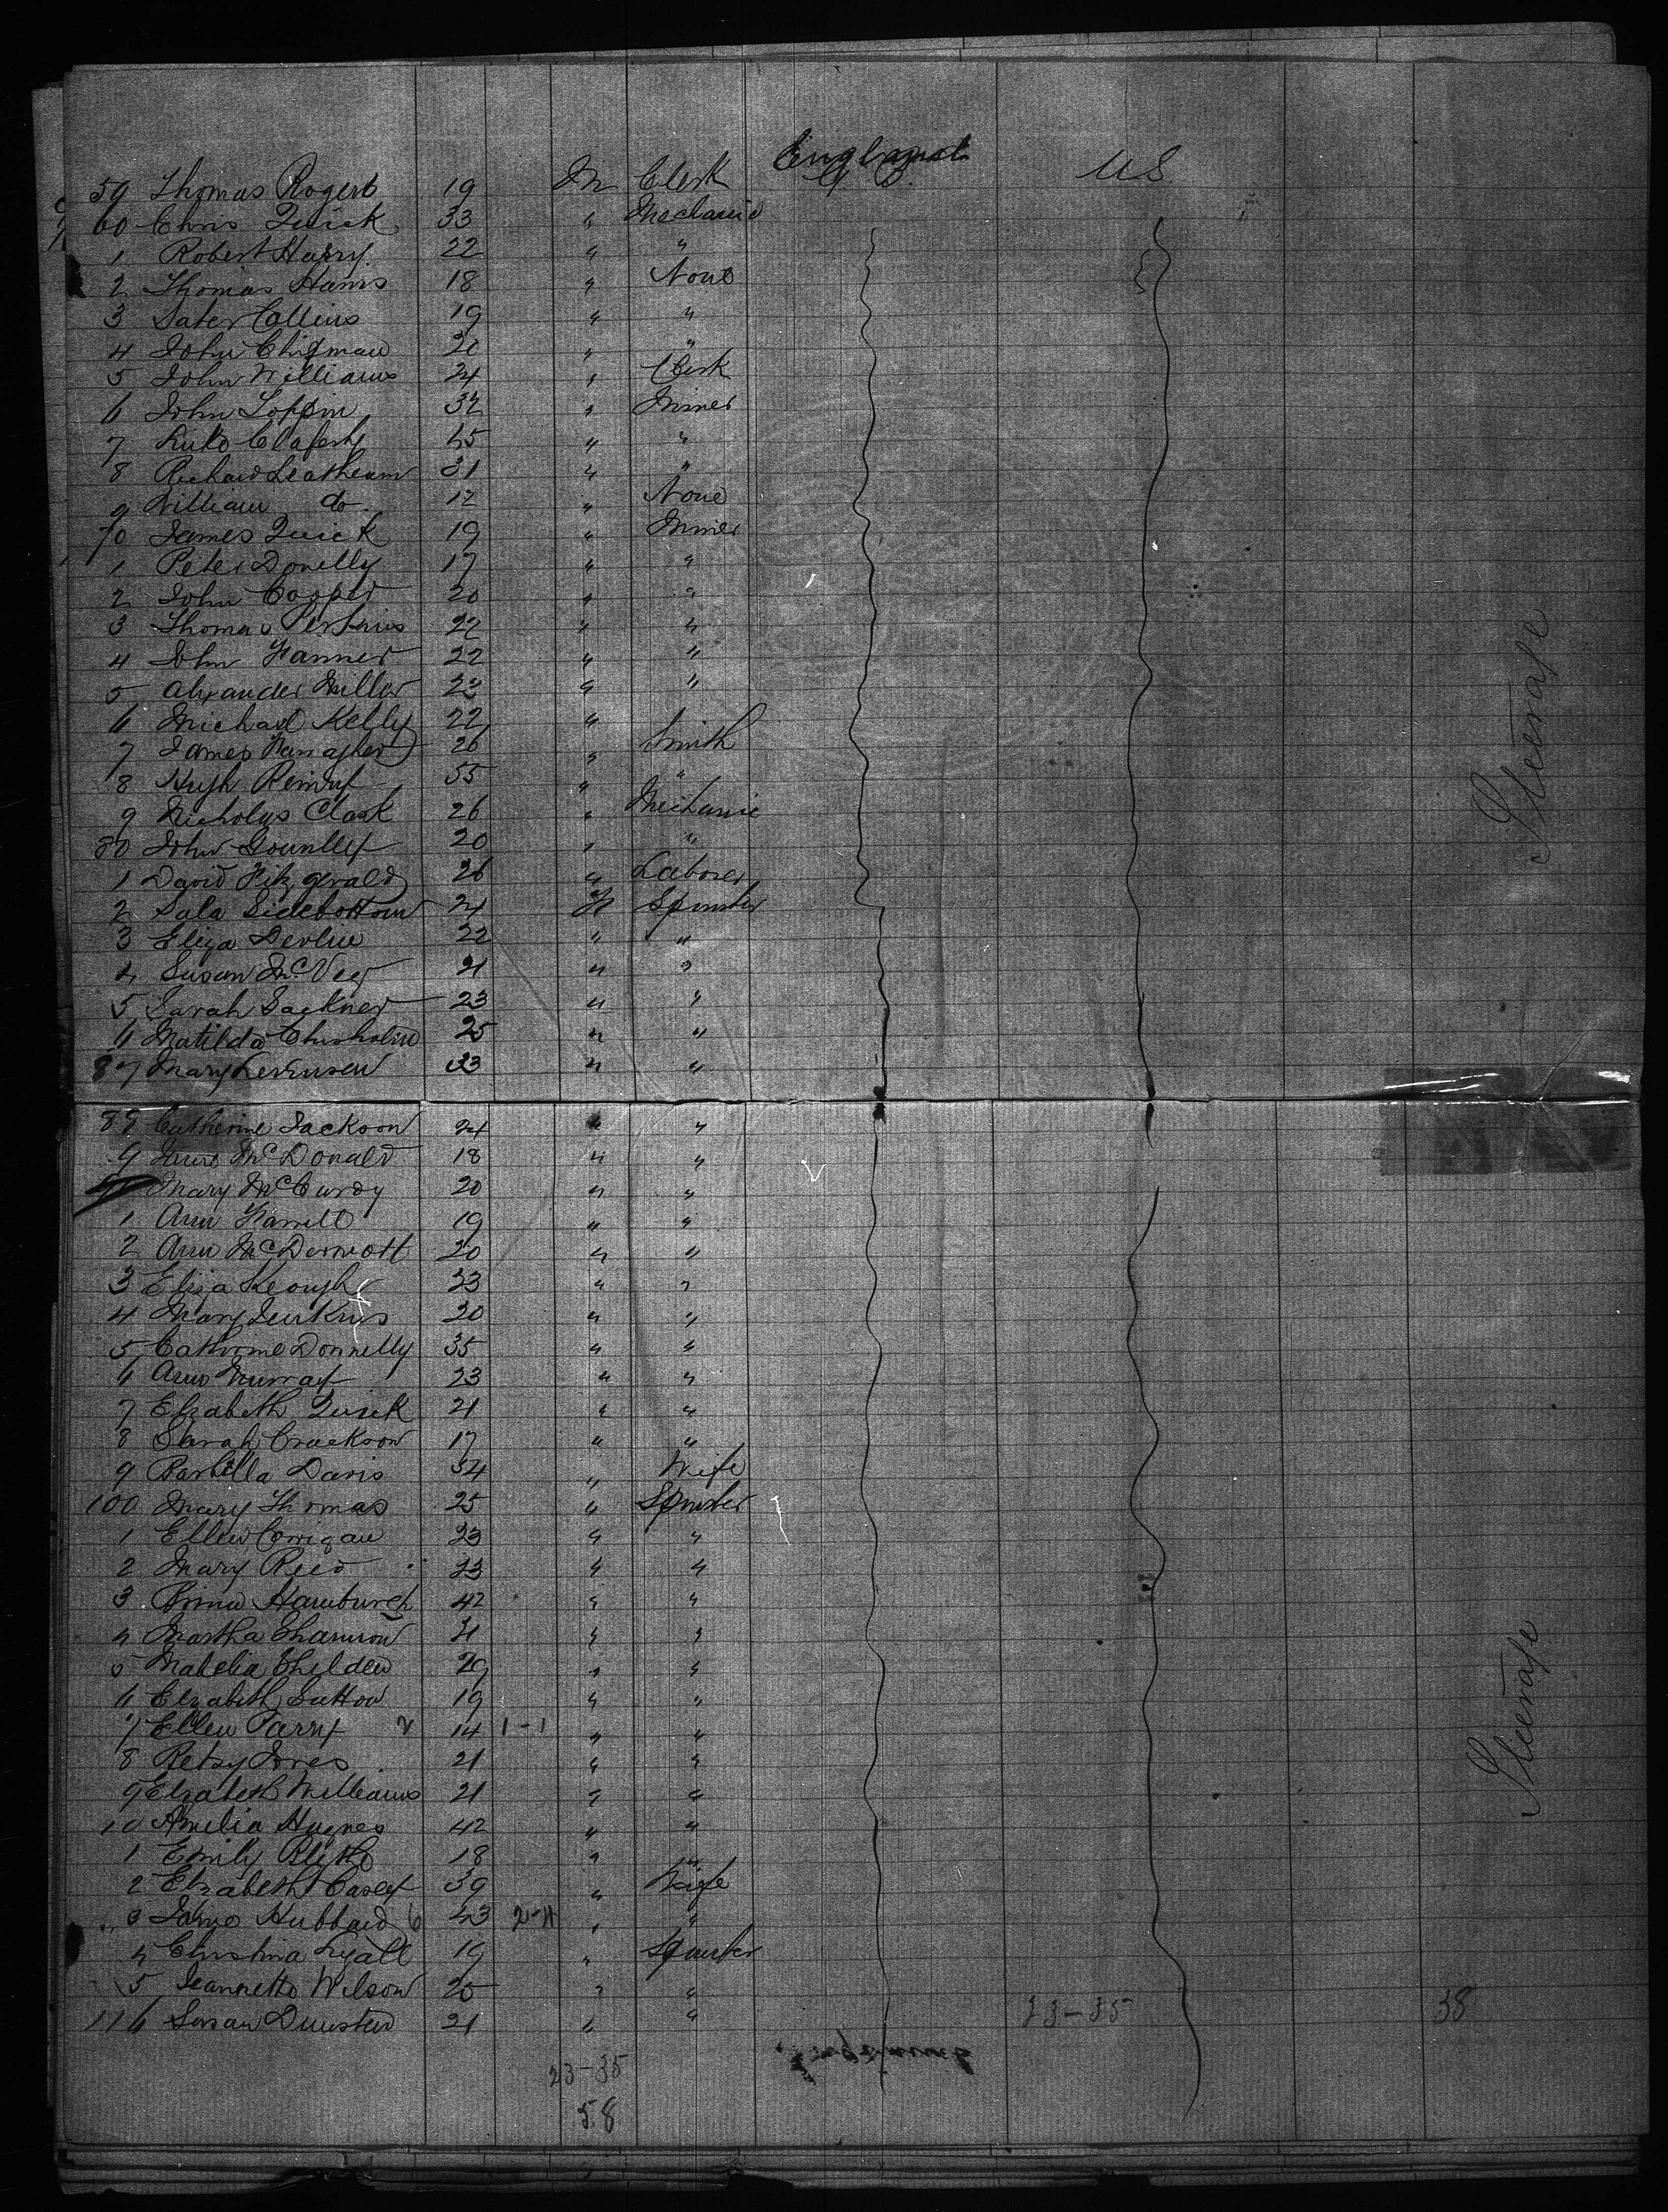 England US
59 Thomas Rogers 19 M Clerk
60 Chris Quick 33 " Mechanic
1 Robert Harry 22 " "
2 Thomas Harris 18 " None
3 Collins 19 " "
4 John Chipman 20 " "
5 John Williams 24 " Clerk
6 John 32 " Miner
7 45 " "
8 Richard Leatheam 31 " "
9 William do. 12 " None
70 James Quick 19 " Miner
1 Peter Donelly 17 " "
2 John Cooper 20 " "
3 Thomas Perkins 22 " "
4 John Farmer 22 " "
5 Alexander Miller 23 " "
6 Michael Kelly 22 " "
7 James 26 " Smith
8 Hugh 55 " "
9 Nicholas Clark 26 " Mechanic
80 John 20 " "
1 David Fitzgerald 26 " Laborer
2 Sidebottom 24 F Spinster
3 Eliza Devlin 22 " "
4 Susan McVey 21 " "
5 Sarah 23 " "
6 Matilda Chisholm 25 " "
87 Mary 33 " "
88 Catherine Jackson 24 " "
9 McDonald 18 " "
Mary McCurdy 20 " "
1 Ann Farrell 19 " "
2 Ann McDermott 20 " "
3 Eliza Keough 23 " "
4 Mary Jenkins 20 " "
5 Catherine Donnelly 35 " "
6 Ann Murray 23 " "
7 Elizabeth Quick 21 " "
8 Sarah Crackson 17 " "
9 Davis 54 " Wife
100 Mary Thomas 25 " Spinster
1 Ellen Corrigan 23 " "
2 Mary Reed 23 " "
3 42 " "
4 Martha 21 " "
5 29 " "
6 Elizabeth Sutton 19 " "
7 Ellen Parry 14 1-1 " "
8 Betsy Jones 21 " "
9 Elizabeth Williams 21 " "
10 Amelia Hughes 42 " "
1 Emily 18 " "
2 Elizabeth Casey 39 " Wife
3 Jane Hubbard 43 " "
4 Christina Lyall 19 " Spinster
5 Jeannette Wilson 25 " "
116 Susan 21 " "
23-35 38
23-35
58
Steerage
Steerage